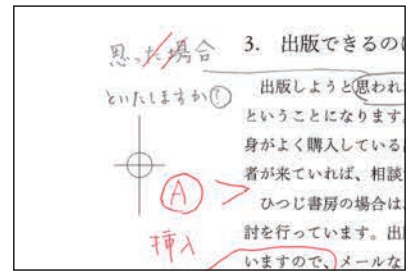 思った場合
といたしますか?
A
挿入
3. 出版できるのに
出版しようと思われ
ということになります。
身がよく購入している
者が来ていれば、相談
ひつじ書房の場合は
討を行っています。出
いますので、メールな